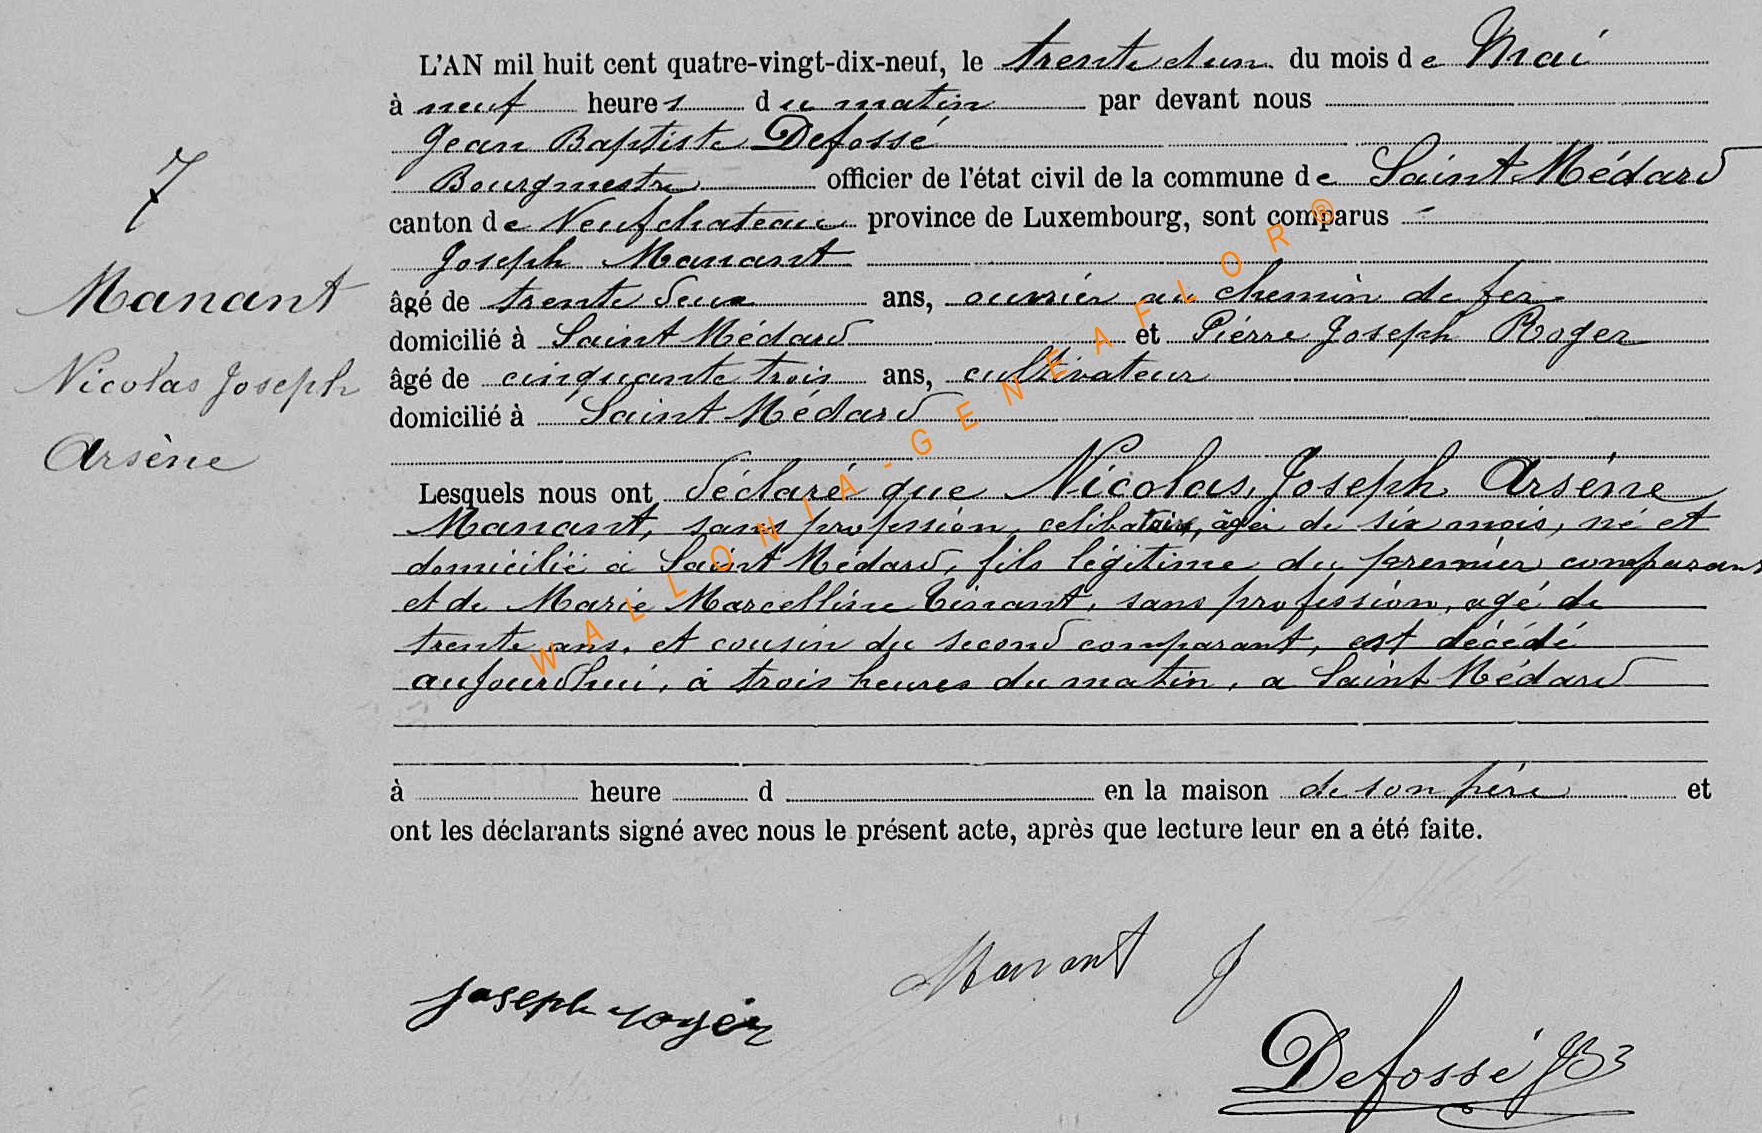 7
Manant
Nicolas Joseph
Arsène
L'AN mil huit cent quatre-vingt-dix-neuf, le trente et un du mois de Mai
à neuf heures du matin par devant nous
Jean Baptiste Defossé
Bourgmestre officier de l'état civil de la commune de Saint Médard
canton de Neufchateau province de Luxembourg, sont comparus
Joseph Manant
âgé de trente deux ans, ouvrier au chemin de fer
domicilié à Saint Médard et Piérre Joseph Roger
âgé de cinquante trois ans, cultivateur
domicilié à Saint Médard
Lesquels nous ont déclaré que Nicolas, Joseph Arséne
Manant, sans profession, celibataire, âgé de six mois, né et
domicilié à Saint Médard, fils légitime du premier comparant
et de Marie Marcelline Tinant, sans profession, agé de
trente ans, et cousin du second comparant, est décédé
aujourd'hui, à trois heures du matin, a Saint Médard
à heure d en la maison de son pére et
ont les déclarants signé avec nous le présent acte, après que lecture leur en a été faite.
Manant J
Joseph roger
Defossé JB
WALLONIA-GENEAFLOR®